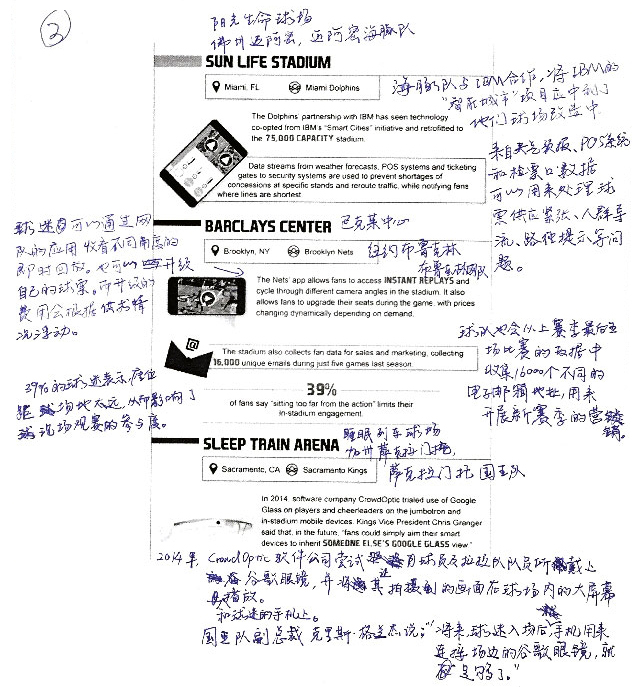 ②
阳光生命球场
佛州迈阿密，迈阿密海豚队
SUN LIFE STADIUM
Miami, FL
Miami Dolphins
海豚队与IBM合作，将IBM的
“智能城市”项目应用到了
他们球场改造中
The Dolphins' partnership with IBM has seen technology
co-opted from IBM's "Smart Cities" initiative and retrofitted to
the 75,000 CAPACITY stadium.
来自天气预报、POS系统
和检票口数据
可以用来处理球
票供应紧张、人群导
流、路径提示等问
题。
Data streams from weather forecasts, POS systems and ticketing
gates to security systems are used to prevent shortages of
concessions at specific stands and reroute traffic, while notifying fans
where lines are shortest.
BARCLAYS CENTER
巴克莱中心
Brooklyn, NY
Brooklyn Nets
纽约布鲁克林
布鲁克林篮网队
球迷可以通过网
队的应用收看不同角度的
即时回放。也可以升级
自己的球票。而升级的
费用会根据供求情
况浮动。
The Nets' app allows fans to access INSTANT REPLAYS and
cycle through different camera angles in the stadium. It also
allows fans to upgrade their seats during the game, with prices
changing dynamically depending on demand.
@
The stadium also collects fan data for sales and marketing, collecting
16,000 unique emails during just five games last season.
球队也会从上赛季最后五
场比赛的数据中
收集16000个不同的
电子邮箱地址，用来
开展新赛季的营销。
39%
of fans say "sitting too far from the action" limits their
in-stadium engagement.
39%的球迷表示，座位
距场地太远，从而影响了
现场观赛的参与度。
SLEEP TRAIN ARENA
睡眠列车球场
加州萨克拉门托，
萨克拉门托国王队
Sacramento, CA
Sacramento Kings
In 2014, software company CrowdOptic trialed use of Google
Glass on players and cheerleaders on the jumbotron and
in-stadium mobile devices. Kings Vice President Chris Granger
said that, in the future, "fans could simply aim their smart
devices to inherit SOMEONE ELSE'S GOOGLE GLASS view"
2014年，CrowdOptic软件公司尝试为球员及拉拉队队员所戴上
谷歌眼镜，并将其拍摄到的画面在球场内的大屏幕
和球迷的手机上播放。
国王队副总裁克里斯·格兰杰说：“将来，球迷入场后，手机用来
连接场边的谷歌眼镜，就
足够了。”